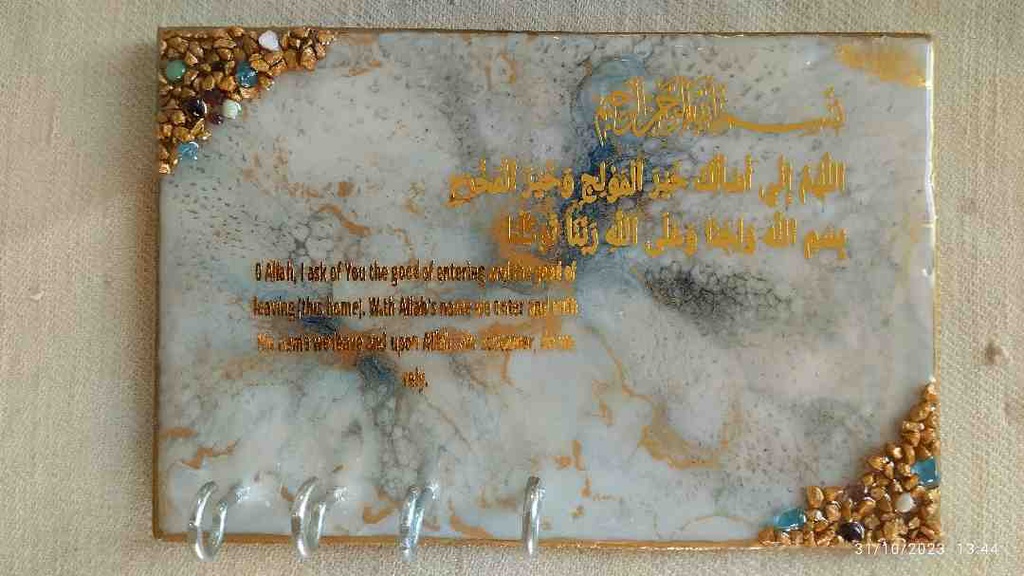 بسم الله الرحمن الرحيم
اللهم إني أسألك خير المولج وخير المخرج
بسم الله ولجنا وعلى الله ربنا توكلنا
O Allah, I ask of You the good of entering and the good of
leaving (this home). With Allah's name we enter and with
His name we leave and upon Allah our sustainer, do we
rely.
31/10/2023 13:44